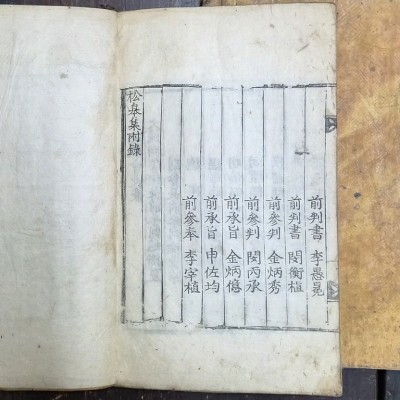 前判書 李愚冕
前判書 閔衡植
前參判 金炳秀
前參判 閔丙承
前承旨 金炳億
前承旨 申佐均
前參奉 李宰植
松皐集附錄